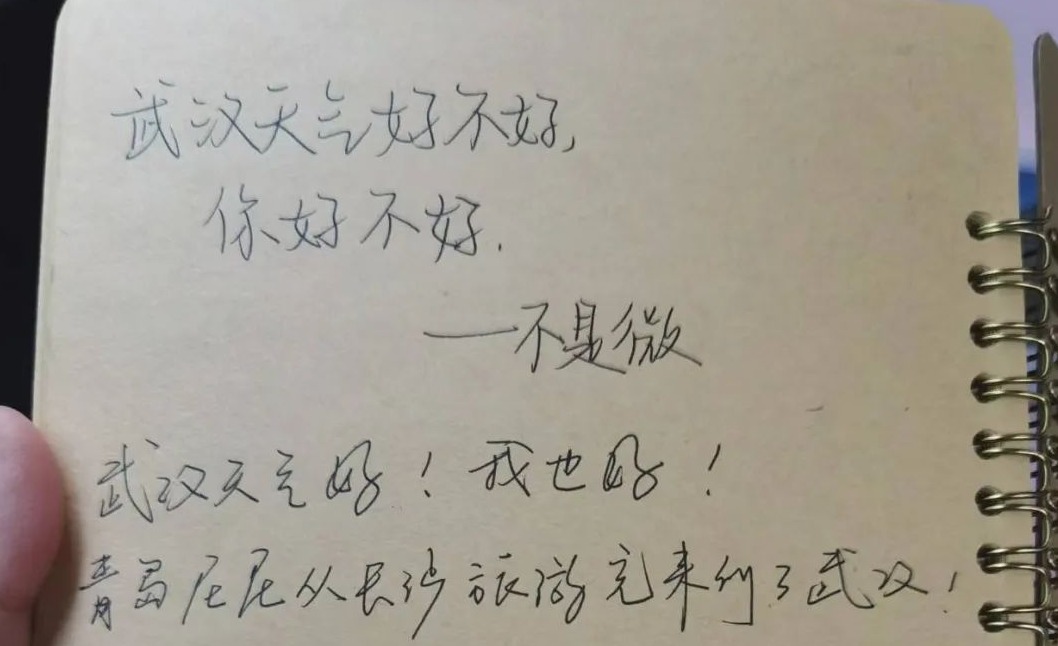 武汉天气好不好,
你好不好.
——不是微
武汉天气好！我也好！
青岛尼尼从长沙旅游完来到了武汉！